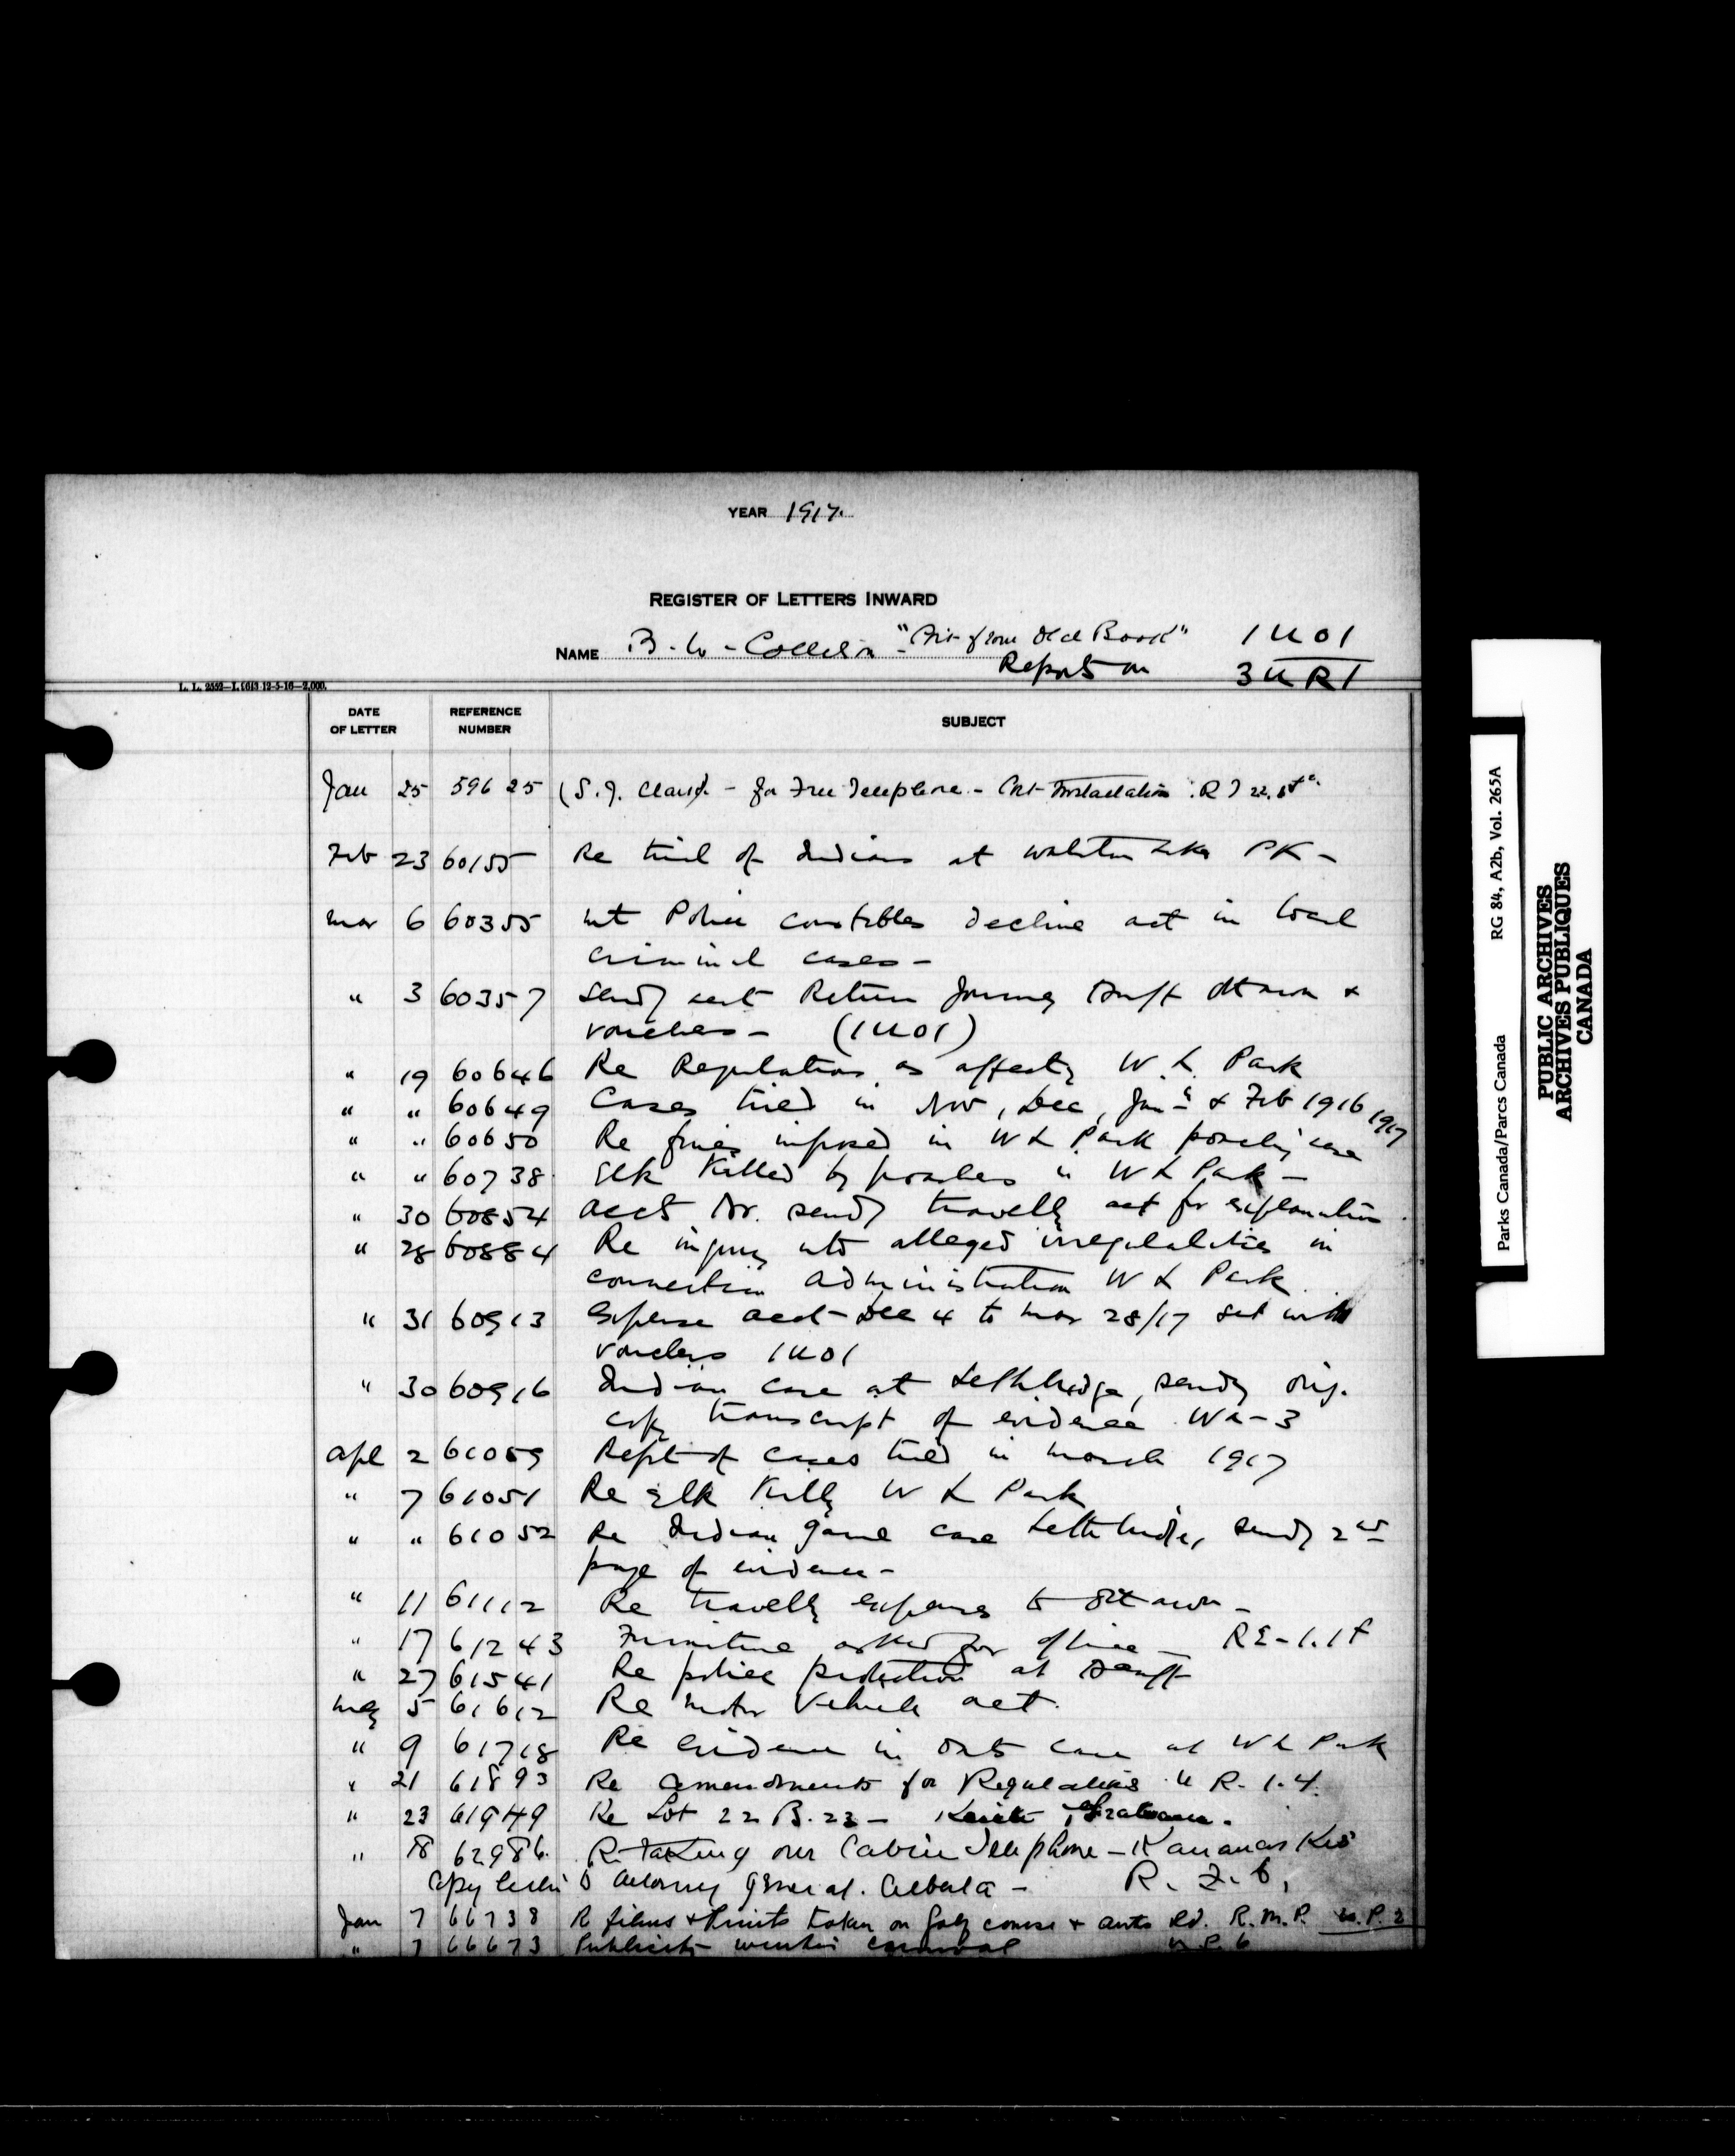 YEAR 1917.
REGISTER OF LETTERS INWARD
NAME B. W. Collison - " from Old Book" 1U01
Reports on 3UR1
L. L. 2552—L. 1613-12-5-16—2,000.
DATE OF LETTER REFERENCE NUMBER SUBJECT
Jan 25 59625 (S. J. Clark. - for Free Telephone - Installation R T 22.
Feb 23 60155 Re trial of Indians at Waterton Lakes PK -
Mar 6 60355 Mt Police constables decline act in local
criminal cases -
" 3 60357 Sendg acct Return Journey Banff Ottawa &
vouchers - (1U01)
" 19 60646 Re Regulations as affectg W. L. Park
" " 60649 Cases tried in Nov, Dec, Jany & Feb 1916 1917
" " 60650 Re fines imposed in W L Park poachg case
" " 60738 Elk killed by poachers in W L Park -
" 30 60854 Acct Br. sendg travellg act for explanation
" 28 60884 Re inquiry into alleged irregularities in
connection administration W L Park
" 31 60913 Expense acct Dec 4 to Mar 28/17 with
vouchers 1U01
" 30 60916 Indian case at Lethbridge, sendg orig.
copy transcript of evidence Wa-3
Apl 2 61059 Rept of cases tried in March 1917
" 7 61051 Re Elk killg W L Park
" " 61052 Re Indian game case Lethbridge, sendg 2nd
page of evidence -
" 11 61112 Re travellg expenses to Ottawa -
" 17 61243 Furniture asked for office - RE-1.1F
" 27 61541 Re police protection at Banff
May 5 61612 Re Motor Vehicle act.
" 9 61718 Re Evidence in case at W L Park
" 21 61893 Re Amendments for Regulations U R. 1.4.
" 23 61949 Re Lot 22 B. 23 -
" 18 62986. R Taking our Cabin Telephone - Kananaskis
Copy letter to Attorney General. Alberta - R. Z. 6,
Jan 7 66738 R films & Prints taken on Golf course & auto Rd. R.M.P. U.P.2
" 7 66673 Publicity winter carnival U.P. 6
Parks Canada/Parcs Canada RG 84, A2b, Vol. 265A
PUBLIC ARCHIVES
ARCHIVES PUBLIQUES
CANADA